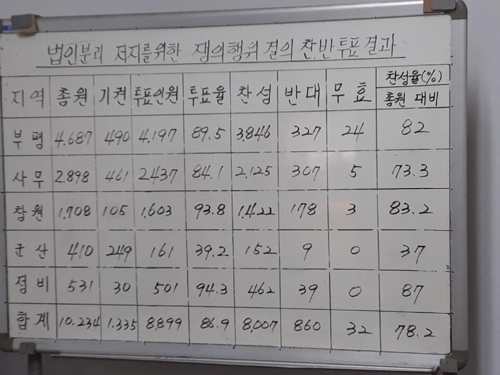 법인분리 저지를위한 쟁의행위 결의 찬반투표 결과
지역 총원 기권 투표인원 투표율 찬성 반대 무효 찬성율(%) 총원 대비
부평 4,687 490 4,197 89.5 3,846 327 24 82
사무 2,898 461 2,437 84.1 2,125 307 5 73.3
창원 1,708 105 1,603 93.8 1,422 178 3 83.2
군산 410 249 161 39.2 152 9 0 37
정비 531 30 501 94.3 462 39 0 87
합계 10,234 1,335 8,899 86.9 8,007 860 32 78.2